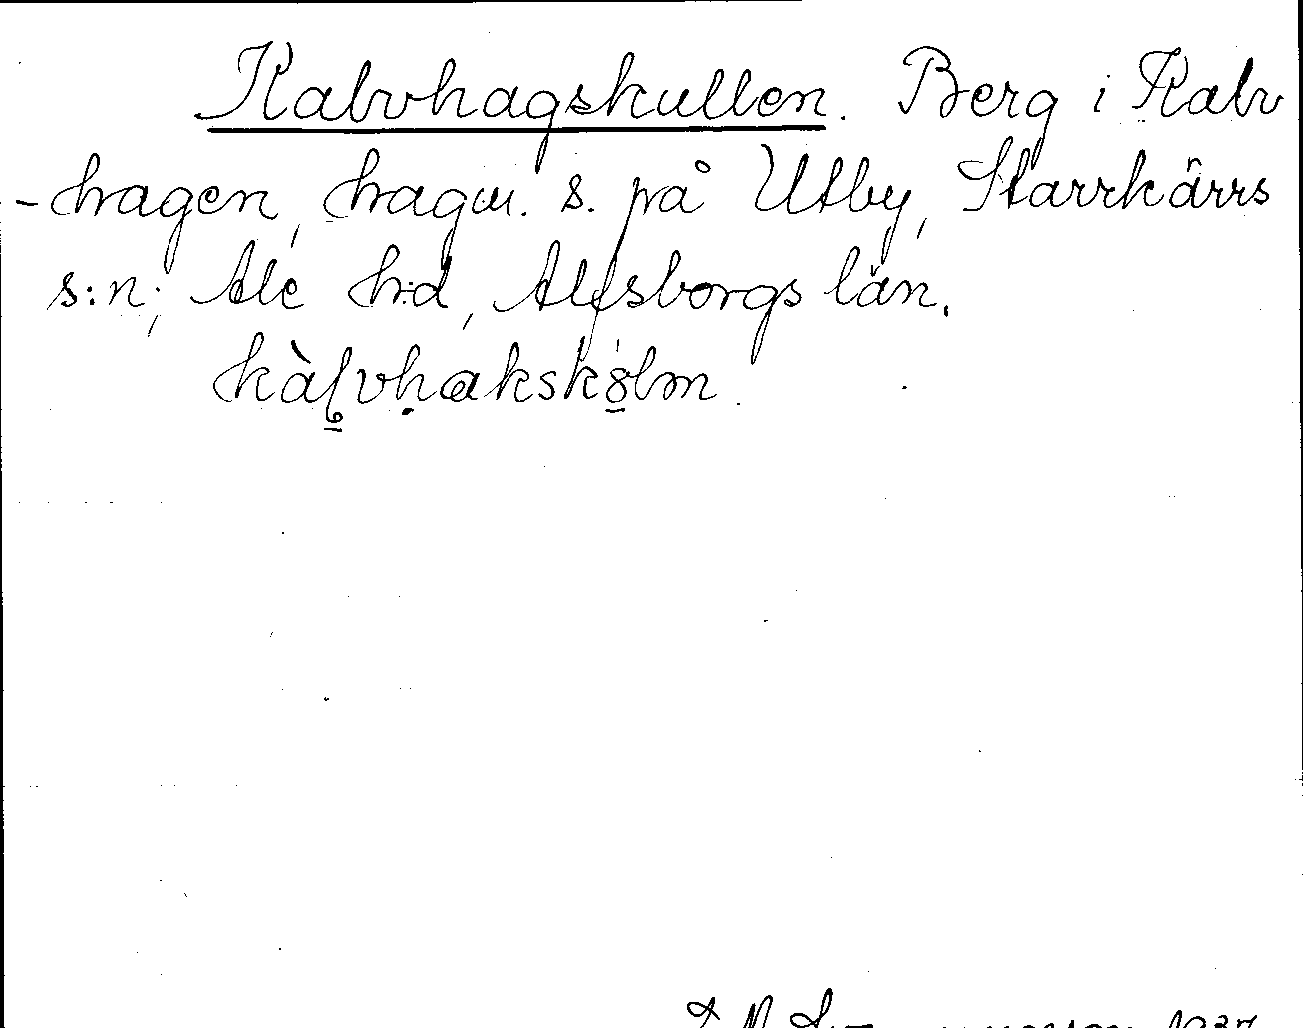 Kalvhagskullen. Berg i Kalv
-hagen, hagm. s. på Utby, Starrkärrs
s:n; Ale h:d, Älfsborgs län.
kàl̥vhakskàlm
1937